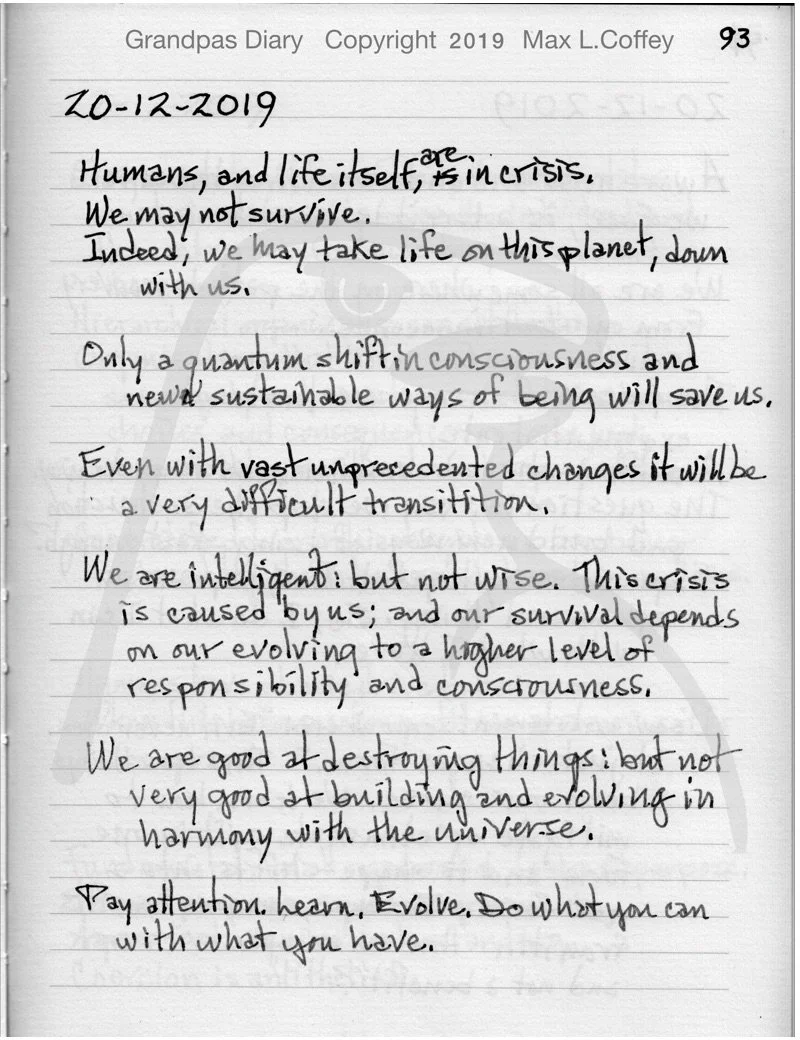 Grandpas Diary Copyright 2019 Max L.Coffey 93
20-12-2019
Humans, and life itself, are in crisis.
We may not survive.
Indeed, we may take life on this planet, down
with us.
Only a quantum shift in consciousness and
new sustainable ways of being will save us.
Even with vast unprecedented changes it will be
a very difficult transitition.
We are intelligent: but not wise. This crisis
is caused by us; and our survival depends
on our evolving to a higher level of
responsibility and consciousness.
We are good at destroying things: but not
very good at building and evolving in
harmony with the universe.
Pay attention. Learn. Evolve. Do what you can
with what you have.